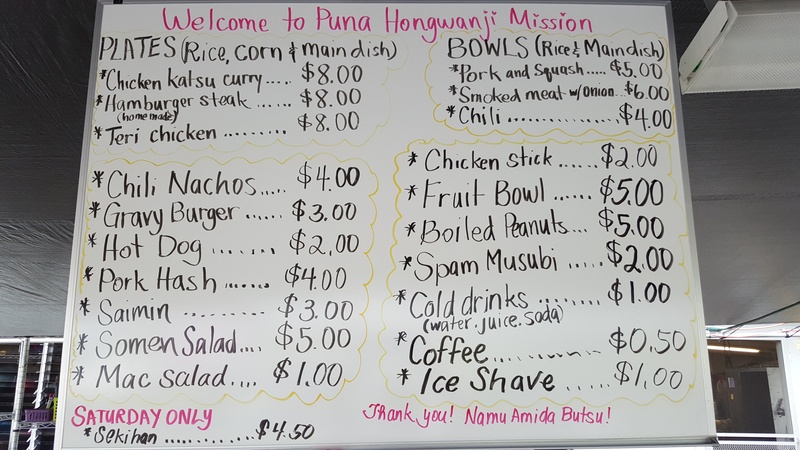 Welcome to Puna Hongwanji Mission
PLATES (Rice, corn & main dish)
*Chicken katsu curry..... $8.00
*Hamburger steak ...... $8.00
(homemade)
*Teri chicken ......... $8.00
BOWLS (Rice & Main dish)
*Pork and Squash..... $5.00
*Smoked meat w/onion.. $6.00
*Chili ............... $4.00
*Chili Nachos..... $4.00
*Gravy Burger ...... $3.00
*Hot Dog ....... $2.00
*Pork Hash ...... $4.00
*Saimin ......... $3.00
*Somen Salad.... $5.00
*Mac Salad.... $1.00
*Chicken stick ...... $2.00
*Fruit Bowl ...... $5.00
*Boiled Peanuts... $5.00
*Spam Musubi ..... $2.00
*Cold drinks ........ $1.00
(water.juice.soda)
*Coffee.......... $0.50
*Ice Shave ..... $1.00
SATURDAY ONLY
*Sekihan ............ $4.50
Thank you! Namu Amida Butsu!